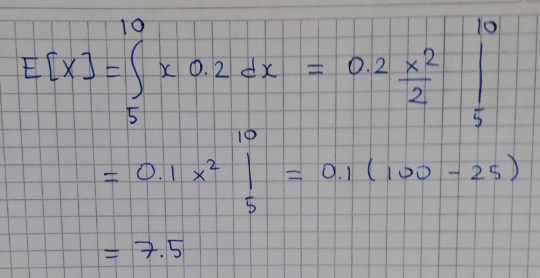 E[X] = ∫₅¹⁰ x 0.2 dx = 0.2 x²/2 |₅¹⁰
= 0.1 x² |₅¹⁰ = 0.1 (100 - 25)
= 7.5